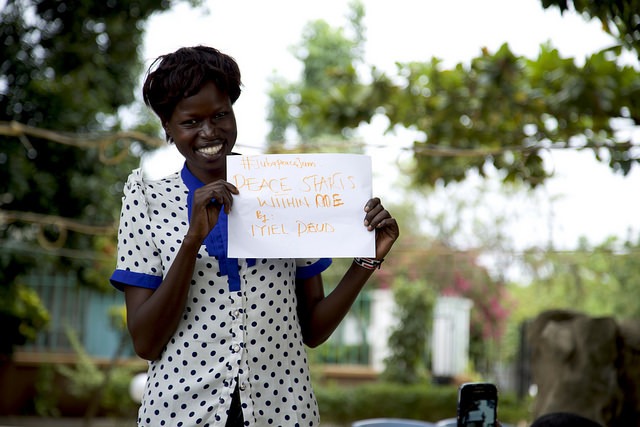 #JubaPeaceJam.
PEACE STARTS
WITHIN ME
By:
IYIEL DEUS